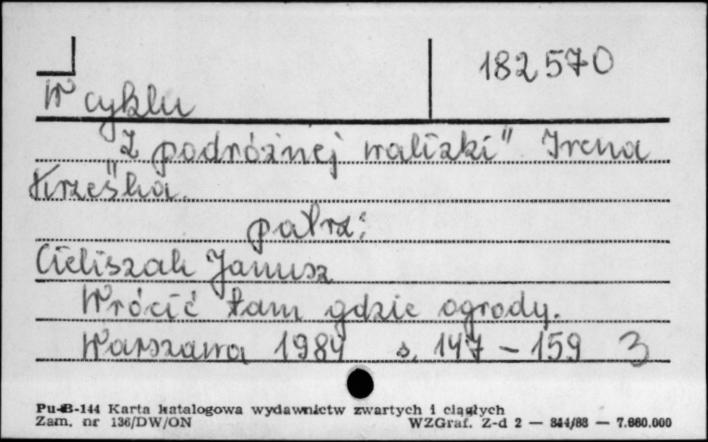 182570
W cyklu
"Z podróżnej walizki" Irena
Krześka.
patrz:
Cieliszak Janusz
Wrócić tam gdzie ogrody.
Warszawa 1984 s. 147 - 159 3
Pu-B-144 Karta katalogowa wydawnictw zwartych i ciągłych
Zam. nr 136/DW/ON WZGraf. Z-d 2 — 844/83 — 7.660.000